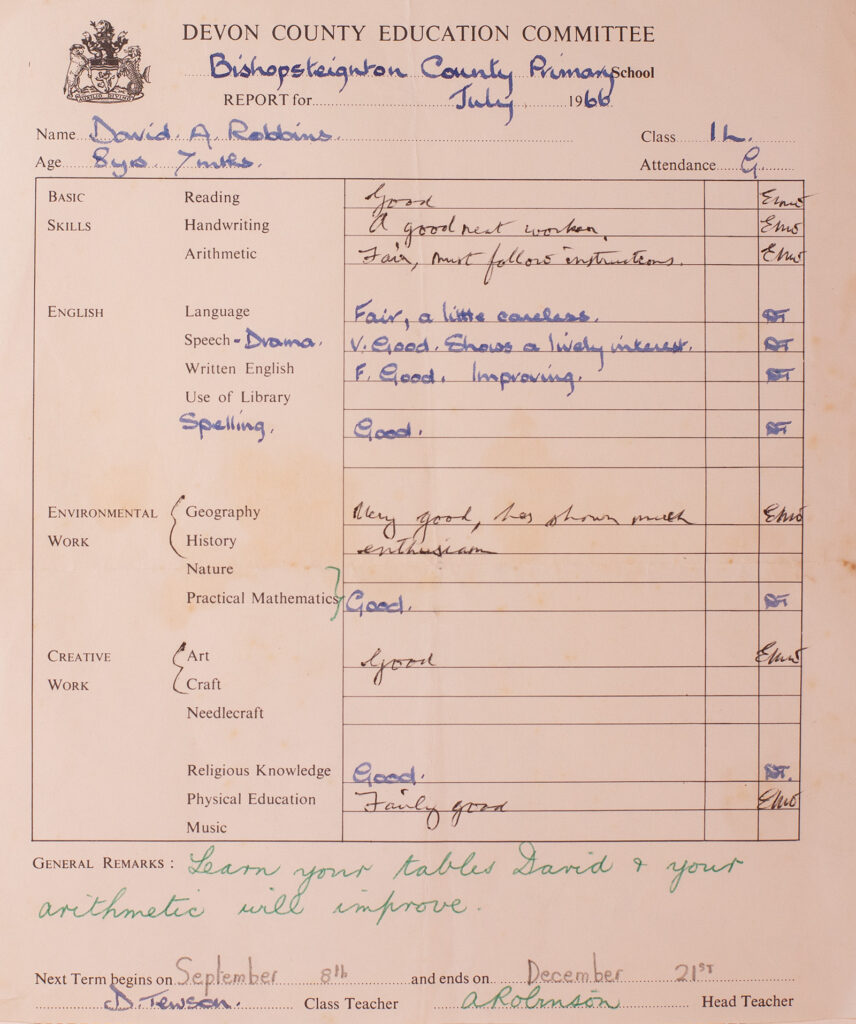 DEVON COUNTY EDUCATION COMMITTEE
Bishopsteignton County Primary School
REPORT for July 1966
Name David. A. Robbins. Class 1L.
Age 8yrs. 7mths. Attendance G.
BASIC Reading Good
SKILLS Handwriting A good neat worker.
Arithmetic Fair, must follow instructions.
ENGLISH Language Fair, a little careless. DT
Speech - Drama. V. Good. Shows a lively interest. DT
Written English F. Good. Improving. DT
Use of Library
Spelling. Good. DT
ENVIRONMENTAL Geography Very good, has shown much
WORK History enthusiasm
Nature
Practical Mathematics Good. DT
CREATIVE Art Good
WORK Craft
Needlecraft
Religious Knowledge Good. DT.
Physical Education Fairly good
Music
GENERAL REMARKS : Learn your tables David & your
arithmetic will improve.
Next Term begins on September 8th and ends on December 21ST
D. Tewson. Class Teacher A Robinson Head Teacher